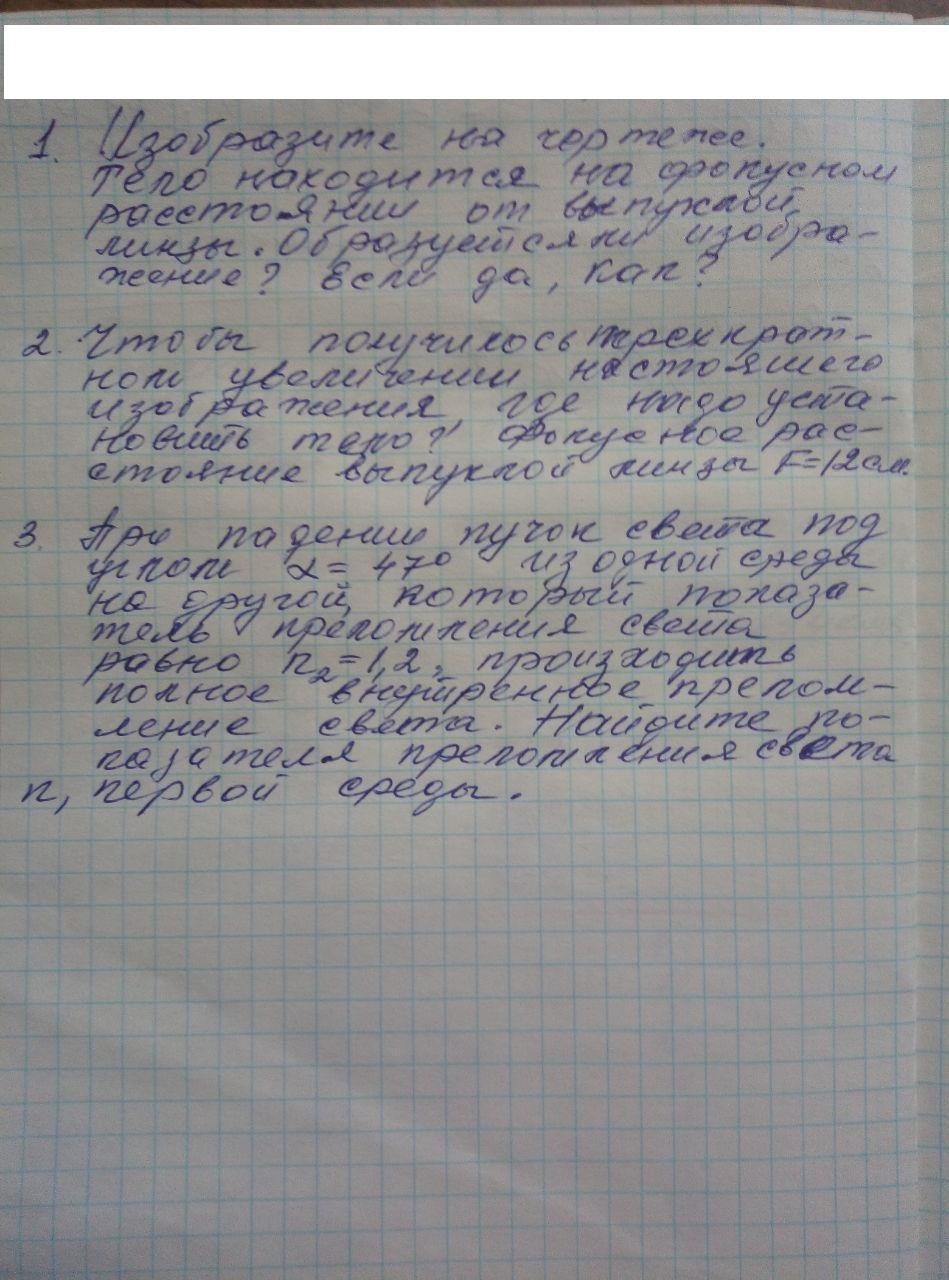 1. Изобразите на чертеже.
Тело находится на фокусном
расстоянии от выпуклой
линзы. Образуется ли изобра-
жение? Если да, как?
2. Чтобы получилось трехкрат-
ном увеличении настояшего
изображения, где надо уста-
новить тело? Фокусное рас-
стояние выпуклой линзы F=12см.
3. При падении пучок света под
углом α = 47° из одной среды
на другой, который показа-
тель преломления света
равно n₂=1,2, происходить
полное внутренное прелом-
ление света. Найдите по-
казателя преломления света
n, первой среды.